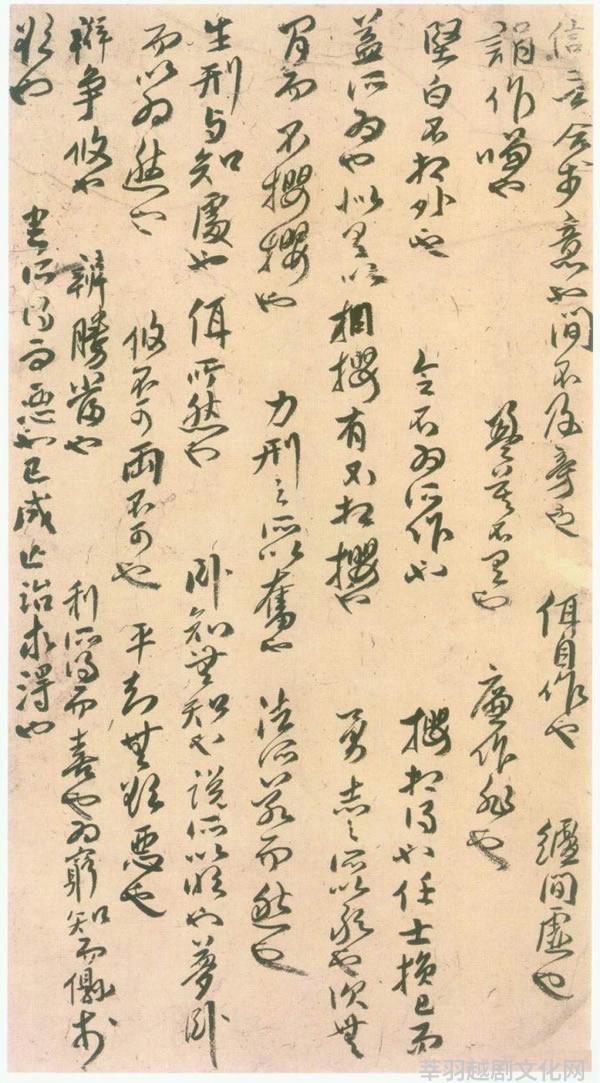 信言合於意也 間不及旁也 佴自作也 纑間虛也
誚作嗛也 盈莫不有也 廉作非也
堅白不相外也 令不為所作也 攖相得也 任士損己而
益所為也 似有以相攖有不相攖也 勇志之所以敢也 次無
間而不攖攖也 力刑之所以奮也 法所若而然也
生刑与知處也 佴所然也 臥知無知也 說所以明也 夢臥
而以為然也 攸不可兩不可也 平知無欲惡也
辯爭攸也 辯勝當也 利所得而喜也 為窮知而儇於
欲也 害所得而惡也 已成亡治求得也
莘羽越剧文化网